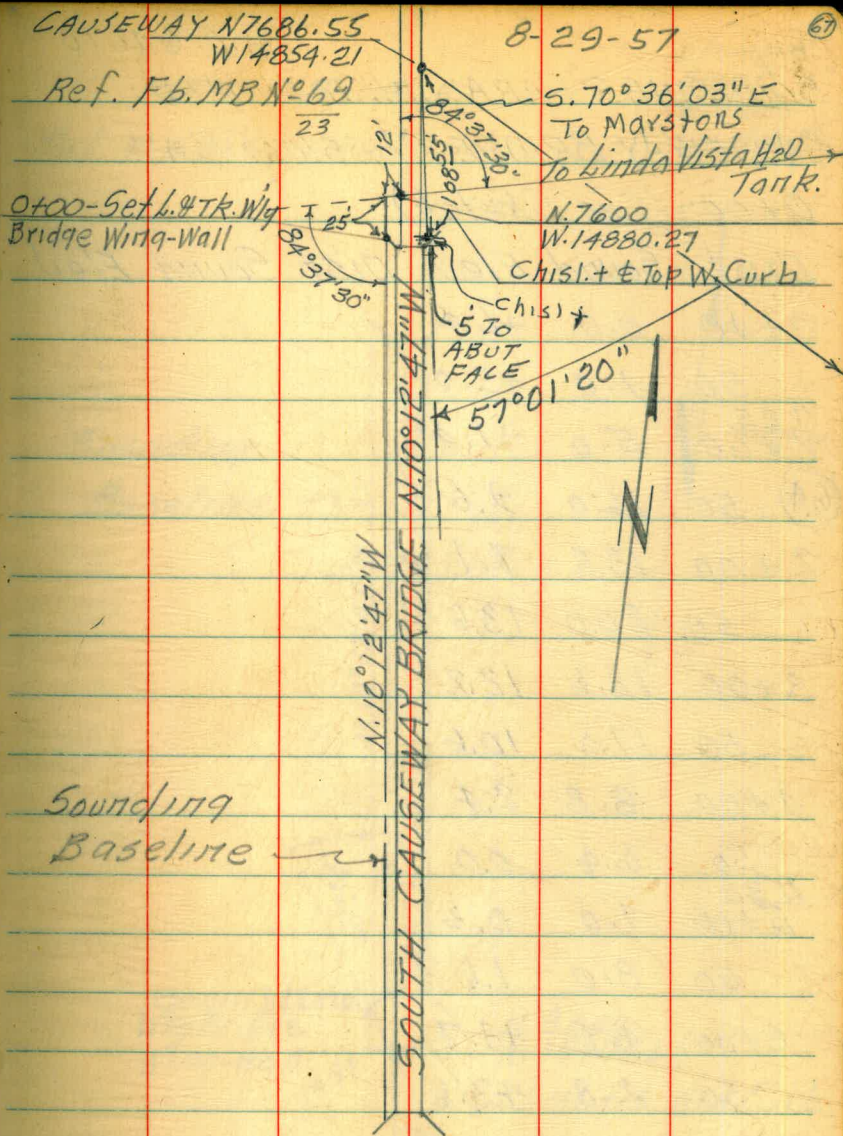 67
CAUSEWAY N7686.55
W14854.21
8-29-57
Ref. Fb. MB Nº69
23
S.70°36'03"E
To Marstons
84°37'30"
12'
108.55
To Linda Vista H2O
Tank.
0+00-Set L.&Tk. W'ly
Bridge Wing-Wall
25'
84°37'30"
N.7600
W.14880.27
Chisl.+ ₵ Top W. Curb
Chisl +
5' TO
ABUT
FACE
57°01'20"
N
N.10°12'47"W
SOUTH CAUSEWAY BRIDGE N.10°12'47"W
Sounding
Baseline